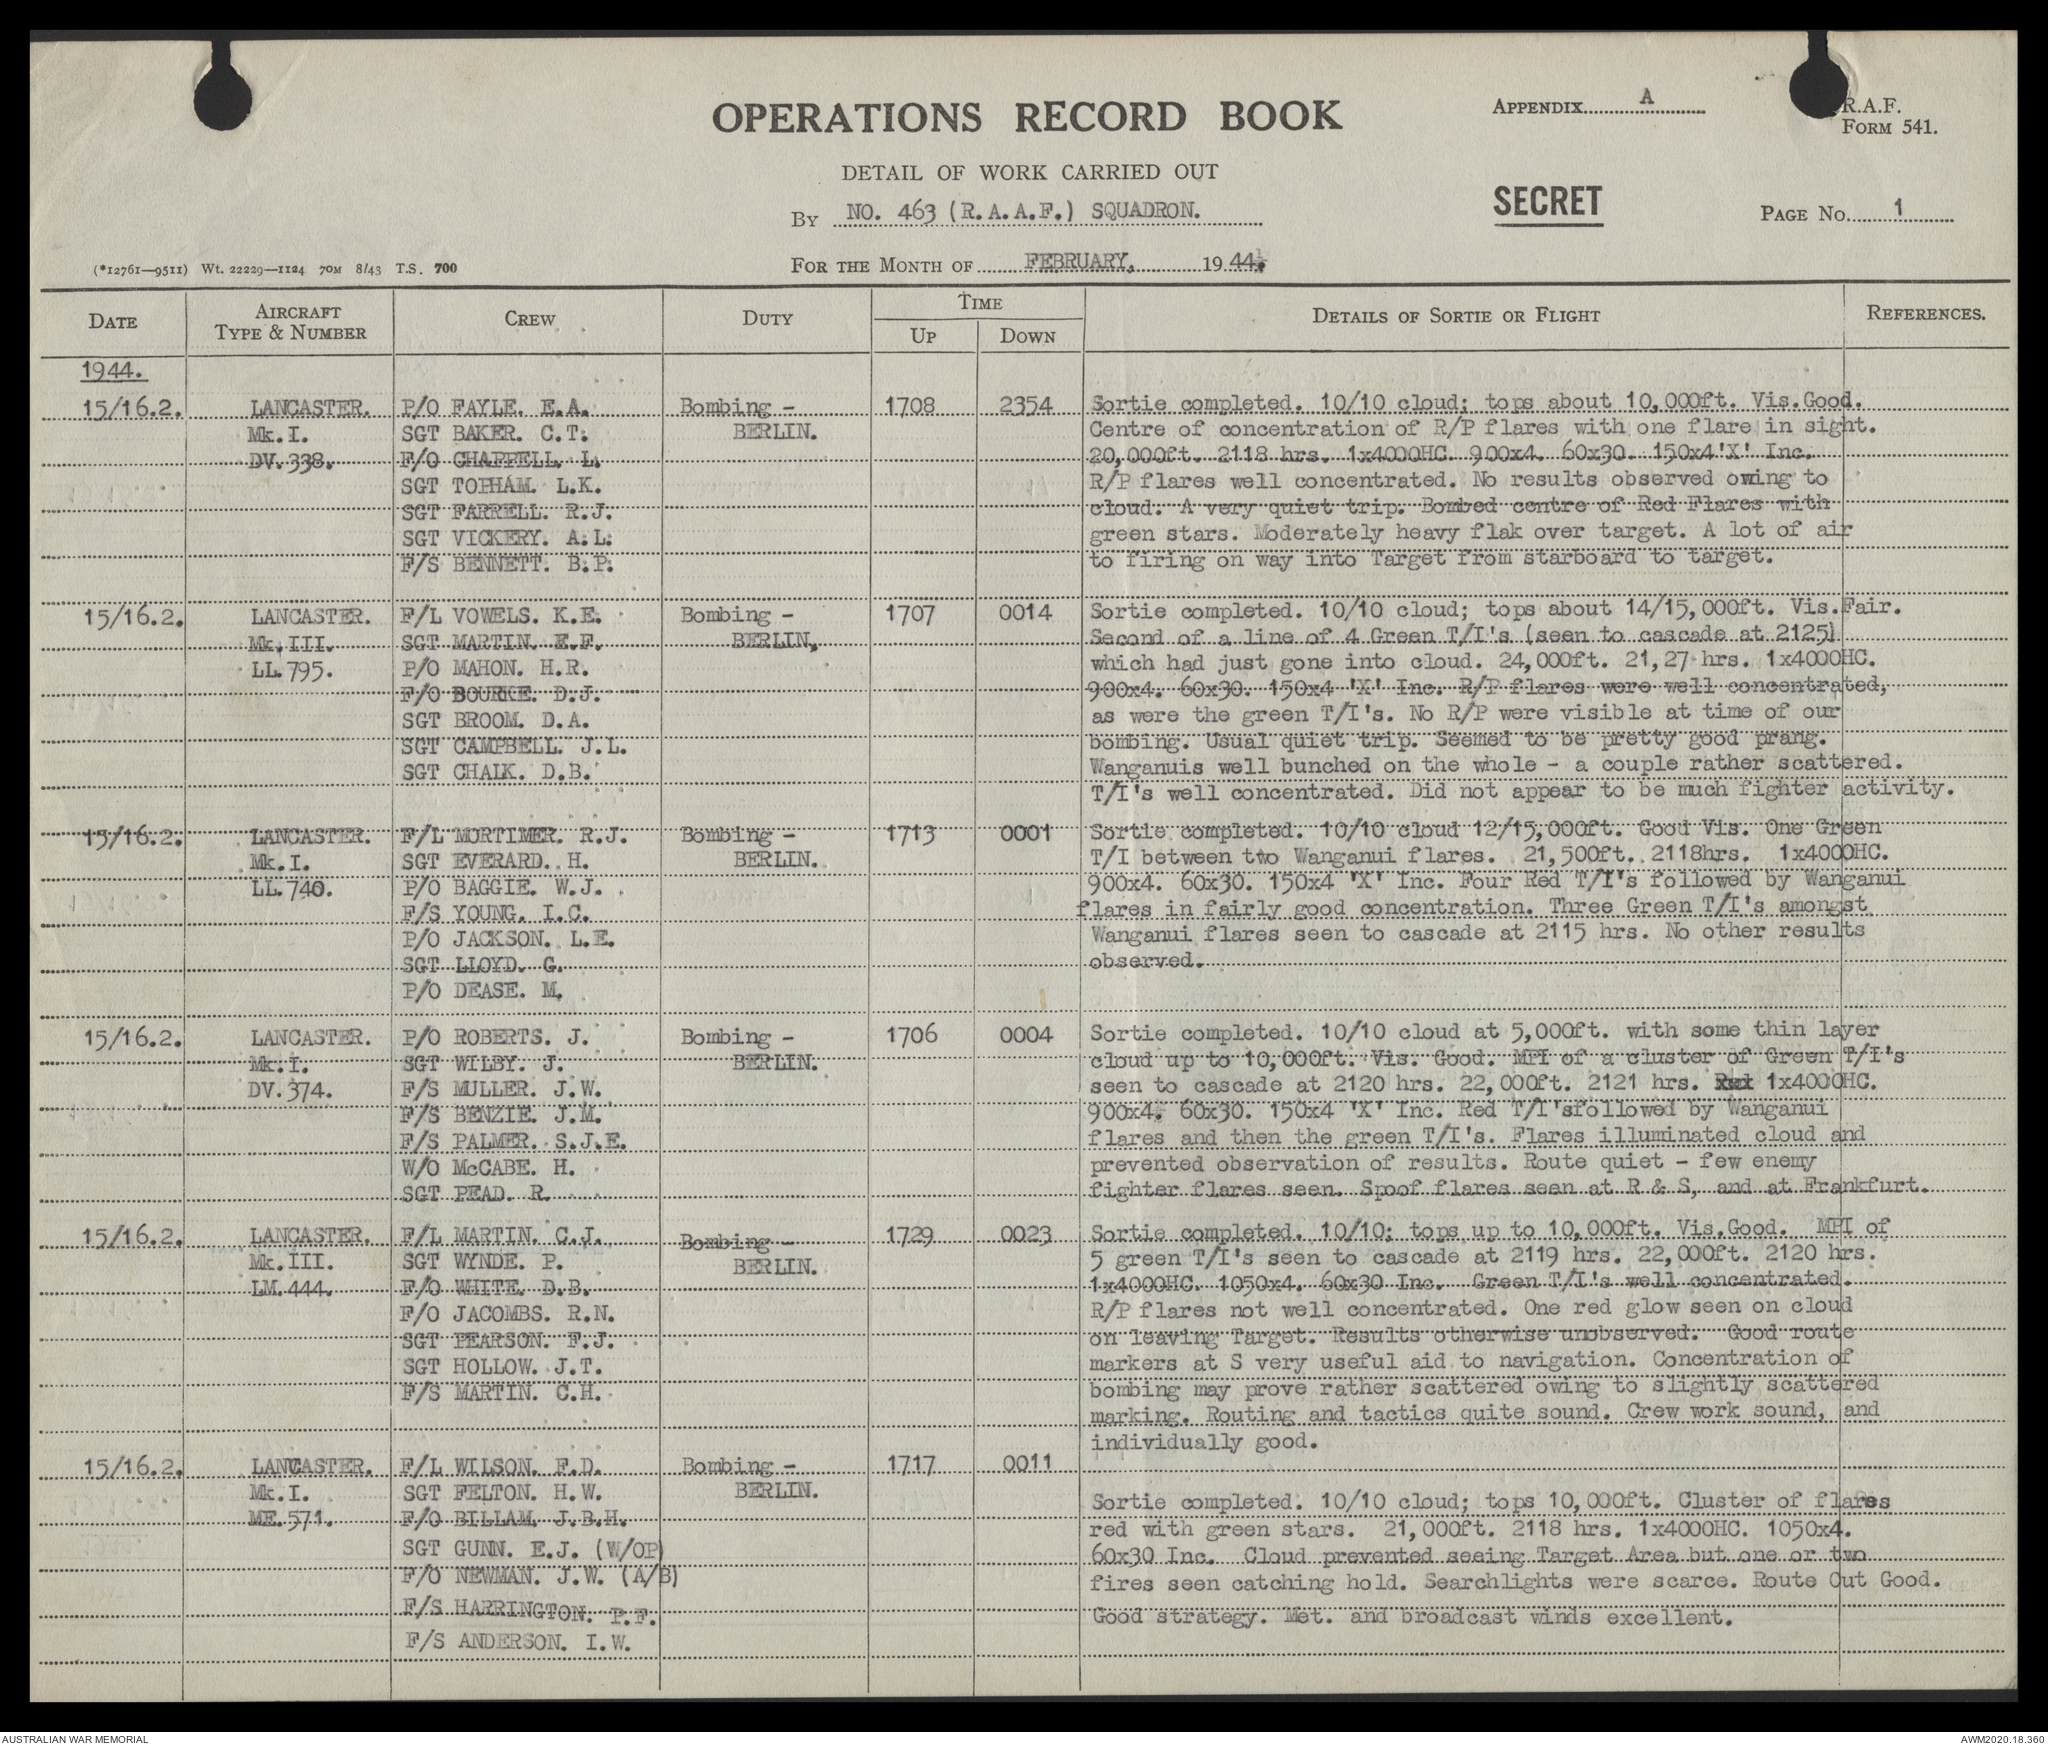 OPERATIONS RECORD BOOK
APPENDIX A
R.A.F.
FORM 541.
DETAIL OF WORK CARRIED OUT
By NO. 463 (R.A.A.F.) SQUADRON.
SECRET
PAGE No. 1
(*12761—9511) Wt. 22229—1124 70M 8/43 T.S. 700
FOR THE MONTH OF FEBRUARY, 1944.
DATE
AIRCRAFT TYPE & NUMBER
CREW
DUTY
TIME
UP
DOWN
DETAILS OF SORTIE OR FLIGHT
REFERENCES.
1944.
15/16.2. LANCASTER. P/O FAYLE. E.A. Bombing - 1708 2354 Sortie completed. 10/10 cloud; tops about 10,000ft. Vis.Good.
Mk.I. SGT BAKER. C.T. BERLIN. Centre of concentration of R/P flares with one flare in sight.
DV.338. F/O CHAPPELL. L. 20,000ft. 2118 hrs. 1x4000HC. 900x4. 60x30. 150x4'X' Inc.
SGT TOPHAM. L.K. R/P flares well concentrated. No results observed owing to
SGT FARRELL. R.J. cloud. A very quiet trip. Bombed centre of Red Flares with
SGT VICKERY. A.L. green stars. Moderately heavy flak over target. A lot of air
F/S BENNETT. B.P. to firing on way into Target from starboard to target.
15/16.2. LANCASTER. F/L VOWELS. K.E. Bombing - 1707 0014 Sortie completed. 10/10 cloud; tops about 14/15,000ft. Vis.Fair.
Mk.III. SGT MARTIN. E.F. BERLIN, Second of a line of 4 Green T/I's (seen to cascade at 2125)
LL.795. P/O MAHON. H.R. which had just gone into cloud. 24,000ft. 21,27 hrs. 1x4000HC.
F/O BOURKE. D.J. 900x4. 60x30. 150x4 'X' Inc. R/P flares were well concentrated,
SGT BROOM. D.A. as were the green T/I's. No R/P were visible at time of our
SGT CAMPBELL. J.L. bombing. Usual quiet trip. Seemed to be pretty good prang.
SGT CHALK. D.B. Wanganuis well bunched on the whole - a couple rather scattered.
T/I's well concentrated. Did not appear to be much fighter activity.
15/16.2. LANCASTER. F/L MORTIMER. R.J. Bombing - 1713 0001 Sortie completed. 10/10 cloud 12/15,000ft. Good Vis. One Green
Mk.I. SGT EVERARD. H. BERLIN. T/I between two Wanganui flares. 21,500ft. 2118hrs. 1x4000HC.
LL.740. P/O BAGGIE. W.J. 900x4. 60x30. 150x4 'X' Inc. Four Red T/I's followed by Wanganui
F/S YOUNG. I.C. flares in fairly good concentration. Three Green T/I's amongst
P/O JACKSON. L.E. Wanganui flares seen to cascade at 2115 hrs. No other results
SGT LLOYD. G. observed.
P/O DEASE. M.
15/16.2. LANCASTER. P/O ROBERTS. J. Bombing - 1706 0004 Sortie completed. 10/10 cloud at 5,000ft. with some thin layer
Mk.I. SGT WILBY. J. BERLIN. cloud up to 10,000ft. Vis. Good. MPI of a cluster of Green T/I's
DV.374. F/S MULLER. J.W. seen to cascade at 2120 hrs. 22,000ft. 2121 hrs. 1x4000HC.
F/S BENZIE. J.M. 900x4. 60x30. 150x4 'X' Inc. Red T/I'sfollowed by Wanganui
F/S PALMER. S.J.E. flares and then the green T/I's. Flares illuminated cloud and
W/O McCABE. H. prevented observation of results. Route quiet - few enemy
SGT PEAD. R. fighter flares seen. Spoof flares seen at R & S, and at Frankfurt.
15/16.2. LANCASTER. F/L MARTIN. C.J. Bombing - 1729 0023 Sortie completed. 10/10; tops up to 10,000ft. Vis.Good. MPI of
Mk.III. SGT WYNDE. P. BERLIN. 5 green T/I's seen to cascade at 2119 hrs. 22,000ft. 2120 hrs.
LM.444. F/O WHITE. D.B. 1x4000HC. 1050x4. 60x30 Inc. Green T/I's well concentrated.
F/O JACOMBS. R.N. R/P flares not well concentrated. One red glow seen on cloud
SGT PEARSON. F.J. on leaving Target. Results otherwise unobserved. Good route
SGT HOLLOW. J.T. markers at S very useful aid to navigation. Concentration of
F/S MARTIN. C.H. bombing may prove rather scattered owing to slightly scattered
marking. Routing and tactics quite sound. Crew work sound, and
individually good.
15/16.2. LANCASTER. F/L WILSON. F.D. Bombing - 1717 0011
Mk.I. SGT FELTON. H.W. BERLIN. Sortie completed. 10/10 cloud; tops 10,000ft. Cluster of flares
ME.571. F/O BILLAM. J.B.H. red with green stars. 21,000ft. 2118 hrs. 1x4000HC. 1050x4.
SGT GUNN. E.J. (W/OP) 60x30 Inc. Cloud prevented seeing Target Area but one or two
F/O NEWMAN. J.W. (A/B) fires seen catching hold. Searchlights were scarce. Route Out Good.
F/S HARRINGTON. P.F. Good strategy. Met. and broadcast winds excellent.
F/S ANDERSON. I.W.
AUSTRALIAN WAR MEMORIAL
AWM2020.18.360